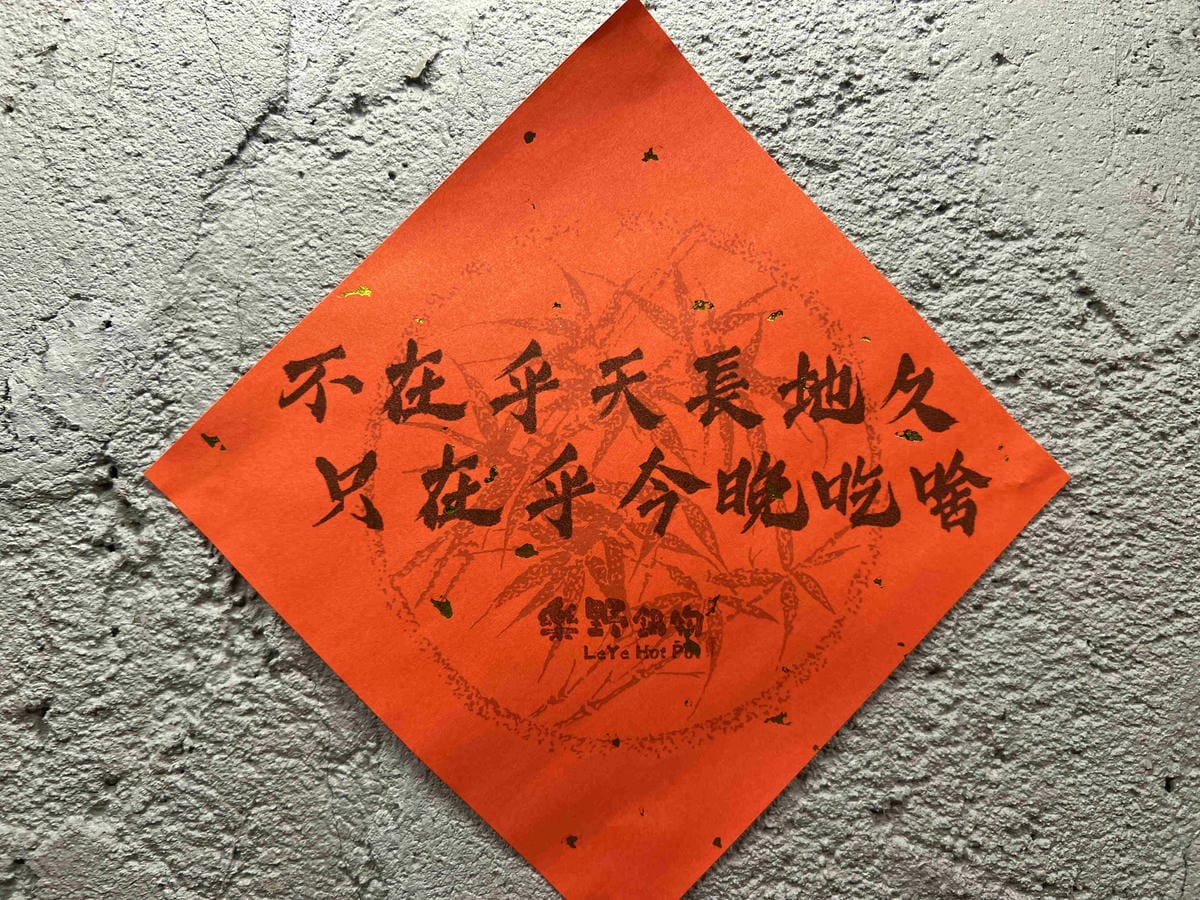 不在乎天長地久
只在乎今晚吃啥
樂野鍋物
LeYe Hot Pot